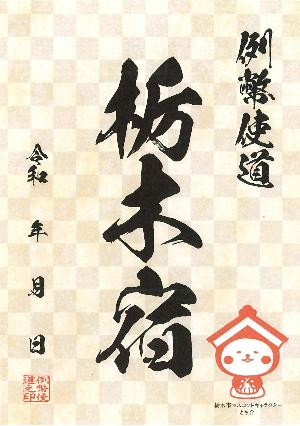 例幣使道
栃木宿
令和 年 月 日
例幣使
道之印
栃木市マスコットキャラクター
とち介